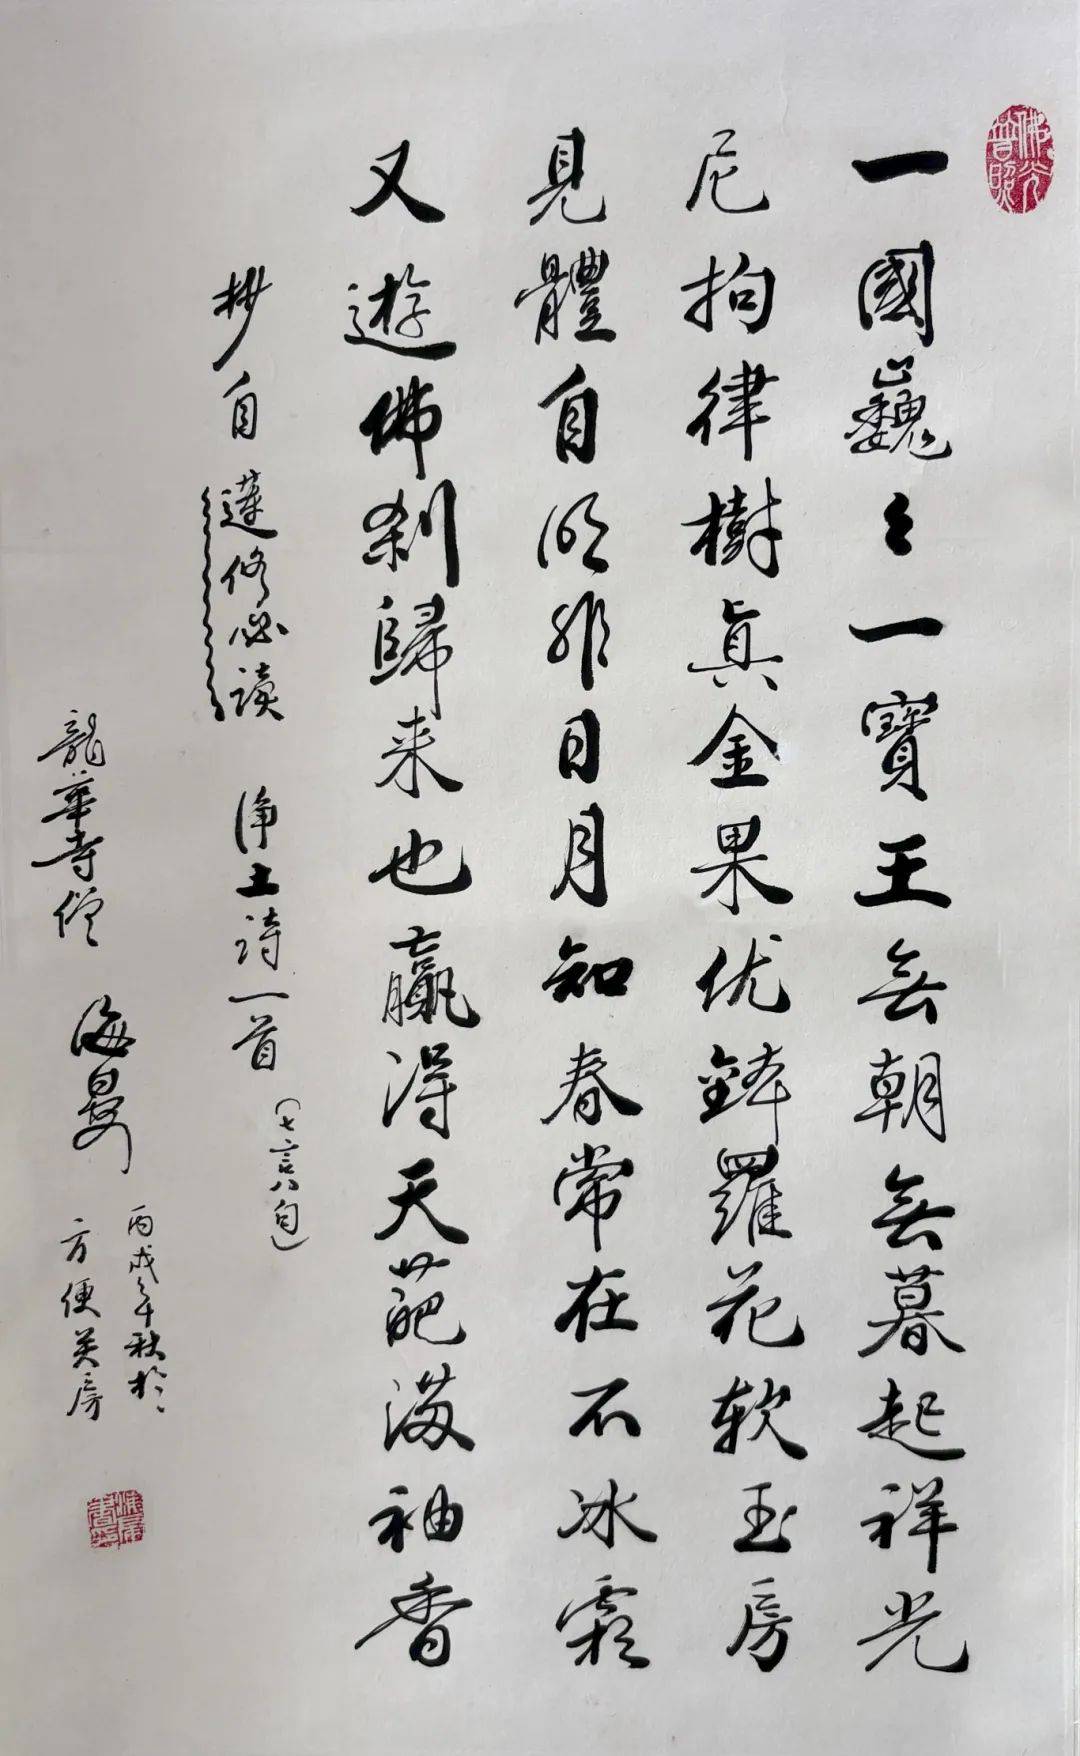 佛光普照
一國巍々一寶王無朝無暮起祥光
尼拘律樹真金果优鉢羅花软玉房
見體自明非日月知春常在不冰霜
又遊佛刹歸来也贏得天葩满袖香
抄自蓮修必读 净土诗一首(七言八句)
龍華寺僧 海曇
丙戌年秋於
方便关房